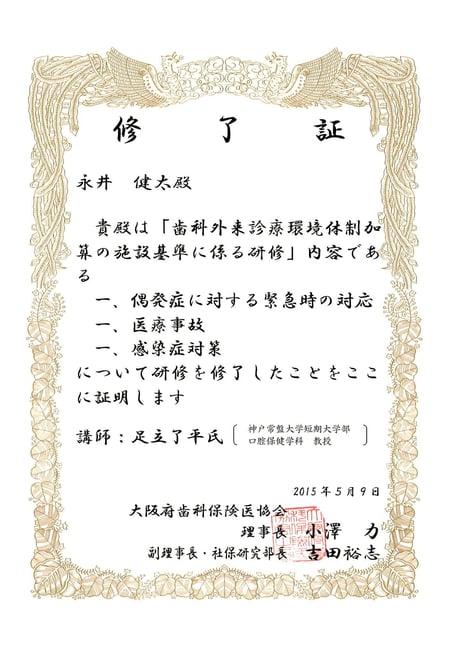 修了証
永井 健太殿
貴殿は「歯科外来診療環境体制加
算の施設基準に係る研修」内容であ
る
一、偶発症に対する緊急時の対応
一、医療事故
一、感染症対策
について研修を修了したことをここ
に証明します
講師：足立了平氏〔神戸常盤大学短期大学部
口腔保健学科 教授〕
2015年5月9日
大阪府歯科保険医協会
理事長 小澤 力
副理事長・社保研究部長 吉田裕志